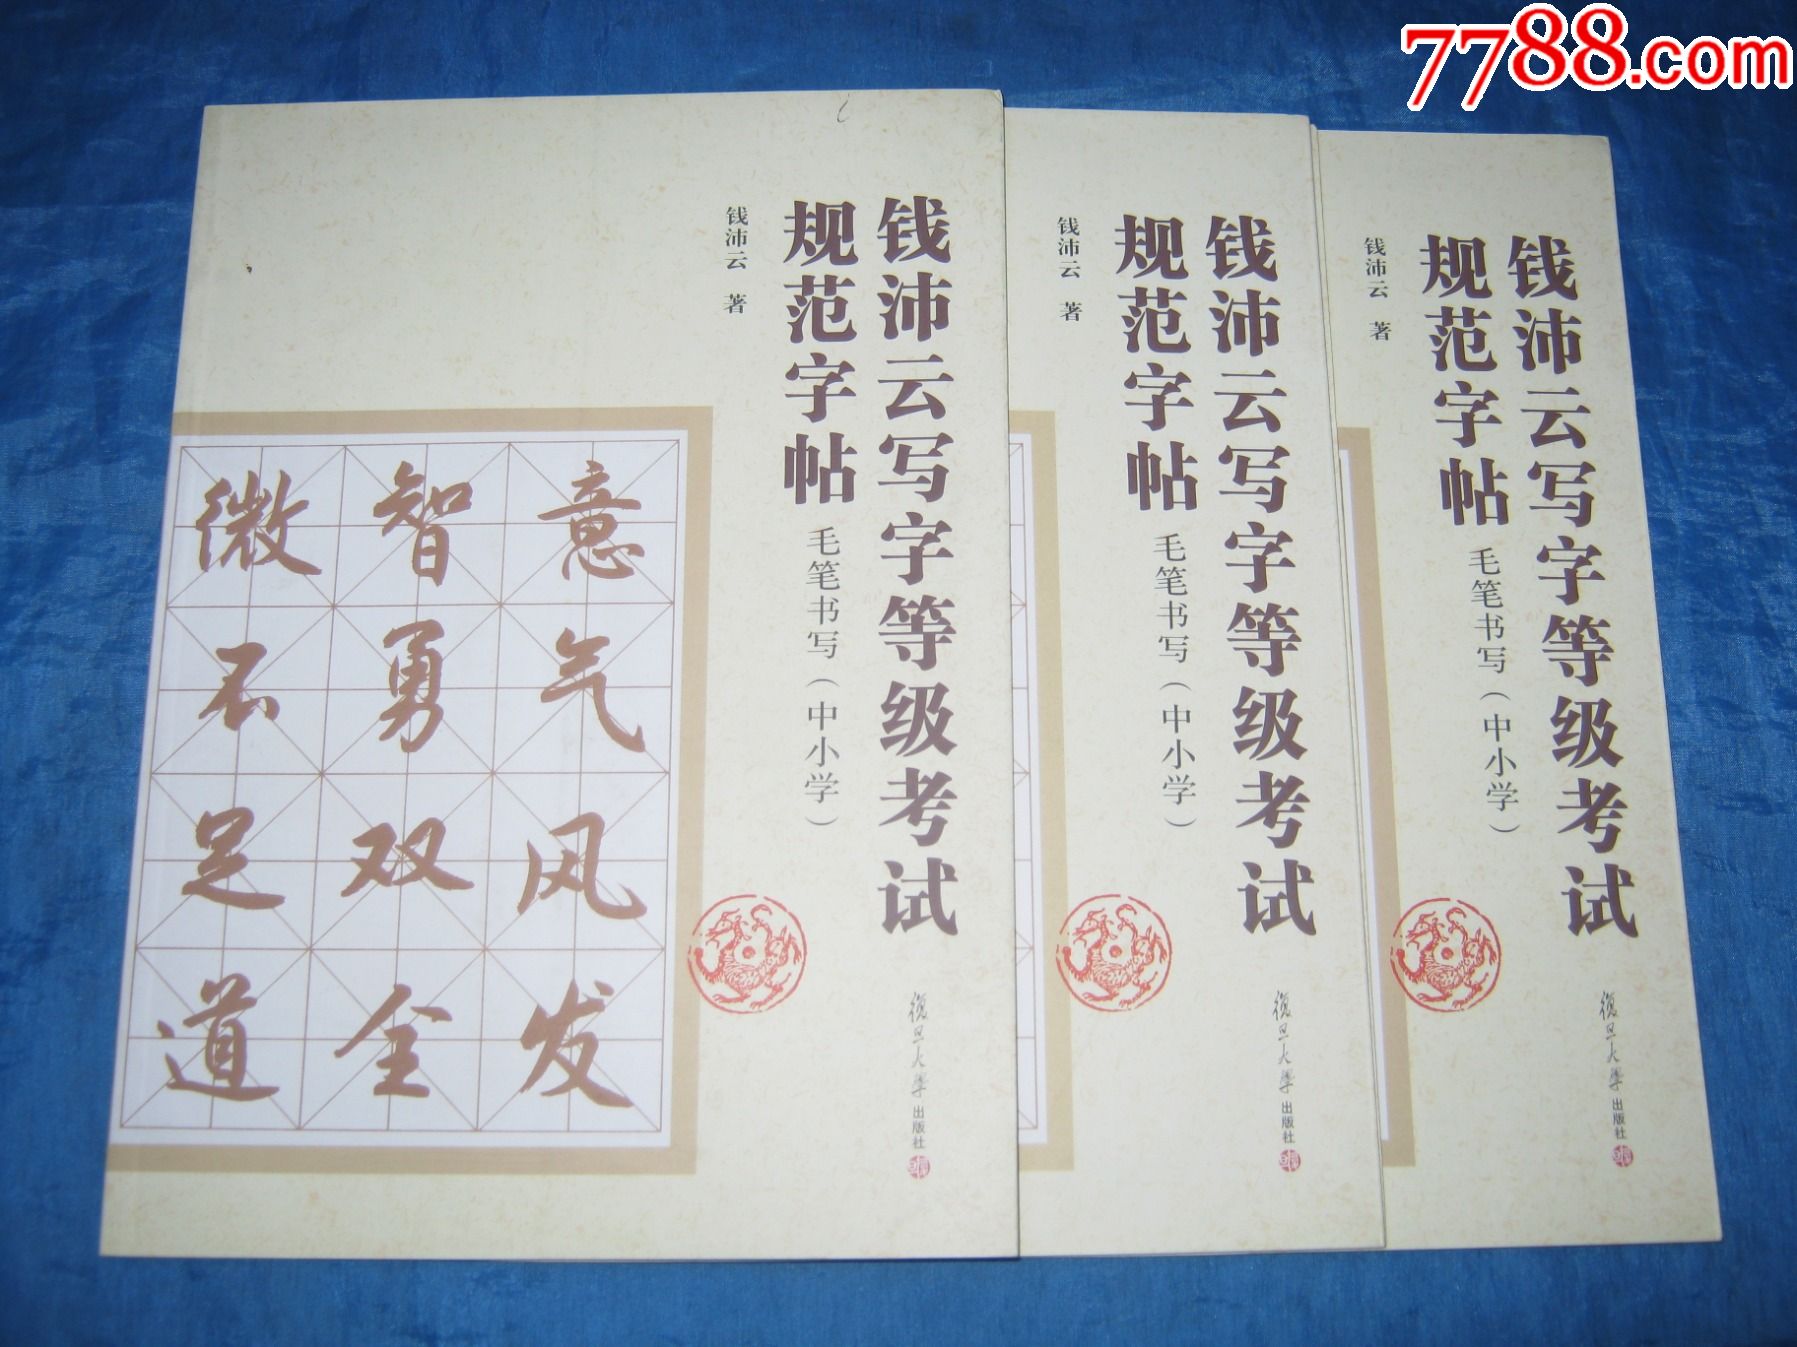 7788.com
钱沛云写字等级考试
规范字帖
毛笔书写（中小学）
钱沛云 著
意气风发
智勇双全
微不足道
復旦大學出版社
钱沛云写字等级考试
规范字帖
毛笔书写（中小学）
钱沛云 著
復旦大學出版社
钱沛云写字等级考试
规范字帖
毛笔书写（中小学）
钱沛云 著
復旦大學出版社